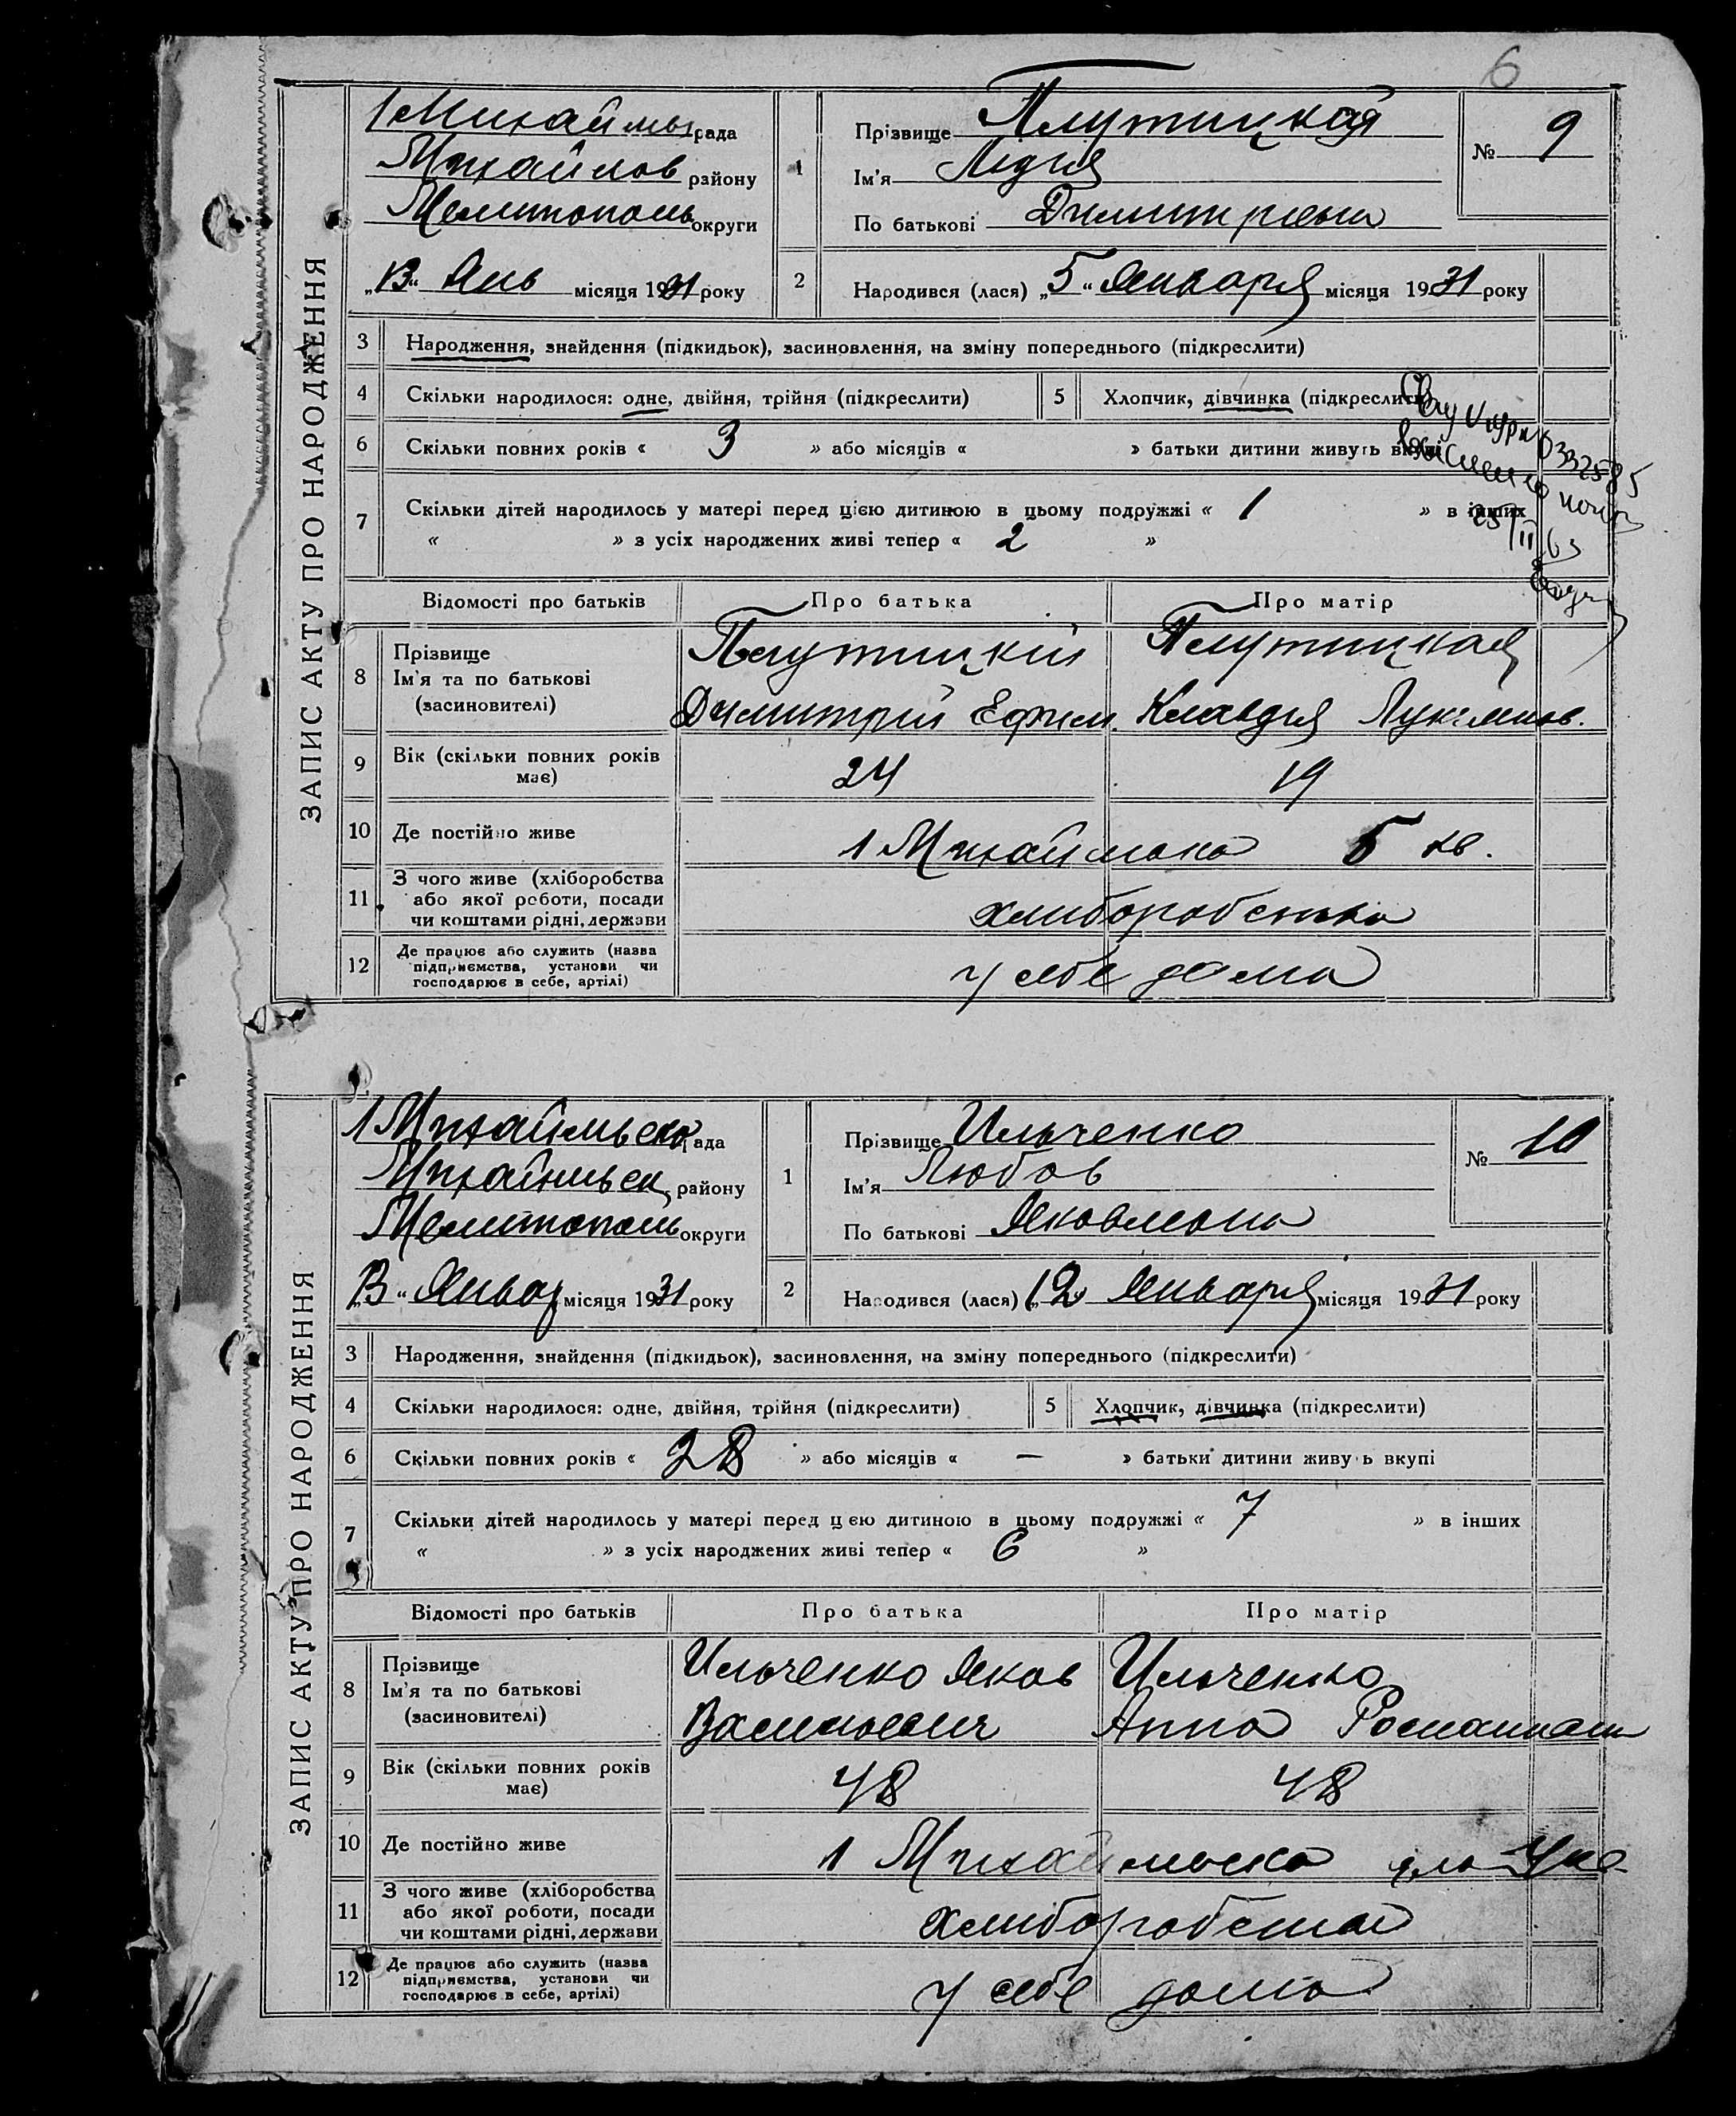 6
ЗАПИС АКТУ ПРО НАРОДЖЕННЯ
1 Михайлы рада
Михайлов району
Мелитополь округи
„13“ Янв місяця 1931 року
1
Прізвище Плутицкая
Ім'я Лідія
По батькові Димитриевна
№ 9
2
Народився (лася) „5“ Января місяця 1931 року
3 Народження, знайдення (підкидьок), засиновлення, на зміну попереднього (підкреслити)
4 Скільки народилося: одне, двійня, трійня (підкреслити)
5 Хлопчик, дівчинка (підкреслити)
6 Скільки повних років « 3 » або місяців « » батьки дитини живуть вкупі
7 Скільки дітей народилось у матері перед цією дитиною в цьому подружжі « 1 » в інших
« » з усіх народжених живі тепер « 2 »
Відомості про батьків Про батька Про матір
8 Прізвище
Ім'я та по батькові
(засиновителі)
Плутицкій
Димитрий Ефим.
Плутицкая
Клавдия Лукиянов.
9 Вік (скільки повних років має) 24 19
10 Де постійно живе 1 Михайловка 5 кв.
11 З чого живе (хліборобства
або якої роботи, посади
чи коштами рідні, держави
хлиборобство
12 Де працює або служить (назва
підприємства, установи чи
господарює в себе, артілі)
у себе дома
ЗАПИС АКТУ ПРО НАРОДЖЕННЯ
рада
району
Мелитополь округи
„13“ Январ місяця 1931 року
1
Прізвище Ильченко
Ім'я Любов
По батькові Яковлевна
№ 10
2
Народився (лася) „12“ Января місяця 1931 року
3 Народження, знайдення (підкидьок), засиновлення, на зміну попереднього (підкреслити)
4 Скільки народилося: одне, двійня, трійня (підкреслити)
5 Хлопчик, дівчинка (підкреслити)
6 Скільки повних років « 28 » або місяців « — » батьки дитини живуть вкупі
7 Скільки дітей народилось у матері перед цією дитиною в цьому подружжі « 7 » в інших
« » з усіх народжених живі тепер « 6 »
Відомості про батьків Про батька Про матір
8 Прізвище
Ім'я та по батькові
(засиновителі)
Ильченко Яков
Васильевич
Ильченко
Анна
9 Вік (скільки повних років має) 48 48
10 Де постійно живе 1
11 З чого живе (хліборобства
або якої роботи, посади
чи коштами рідні, держави
хлиборобство
12 Де працює або служить (назва
підприємства, установи чи
господарює в себе, артілі)
у себе дома